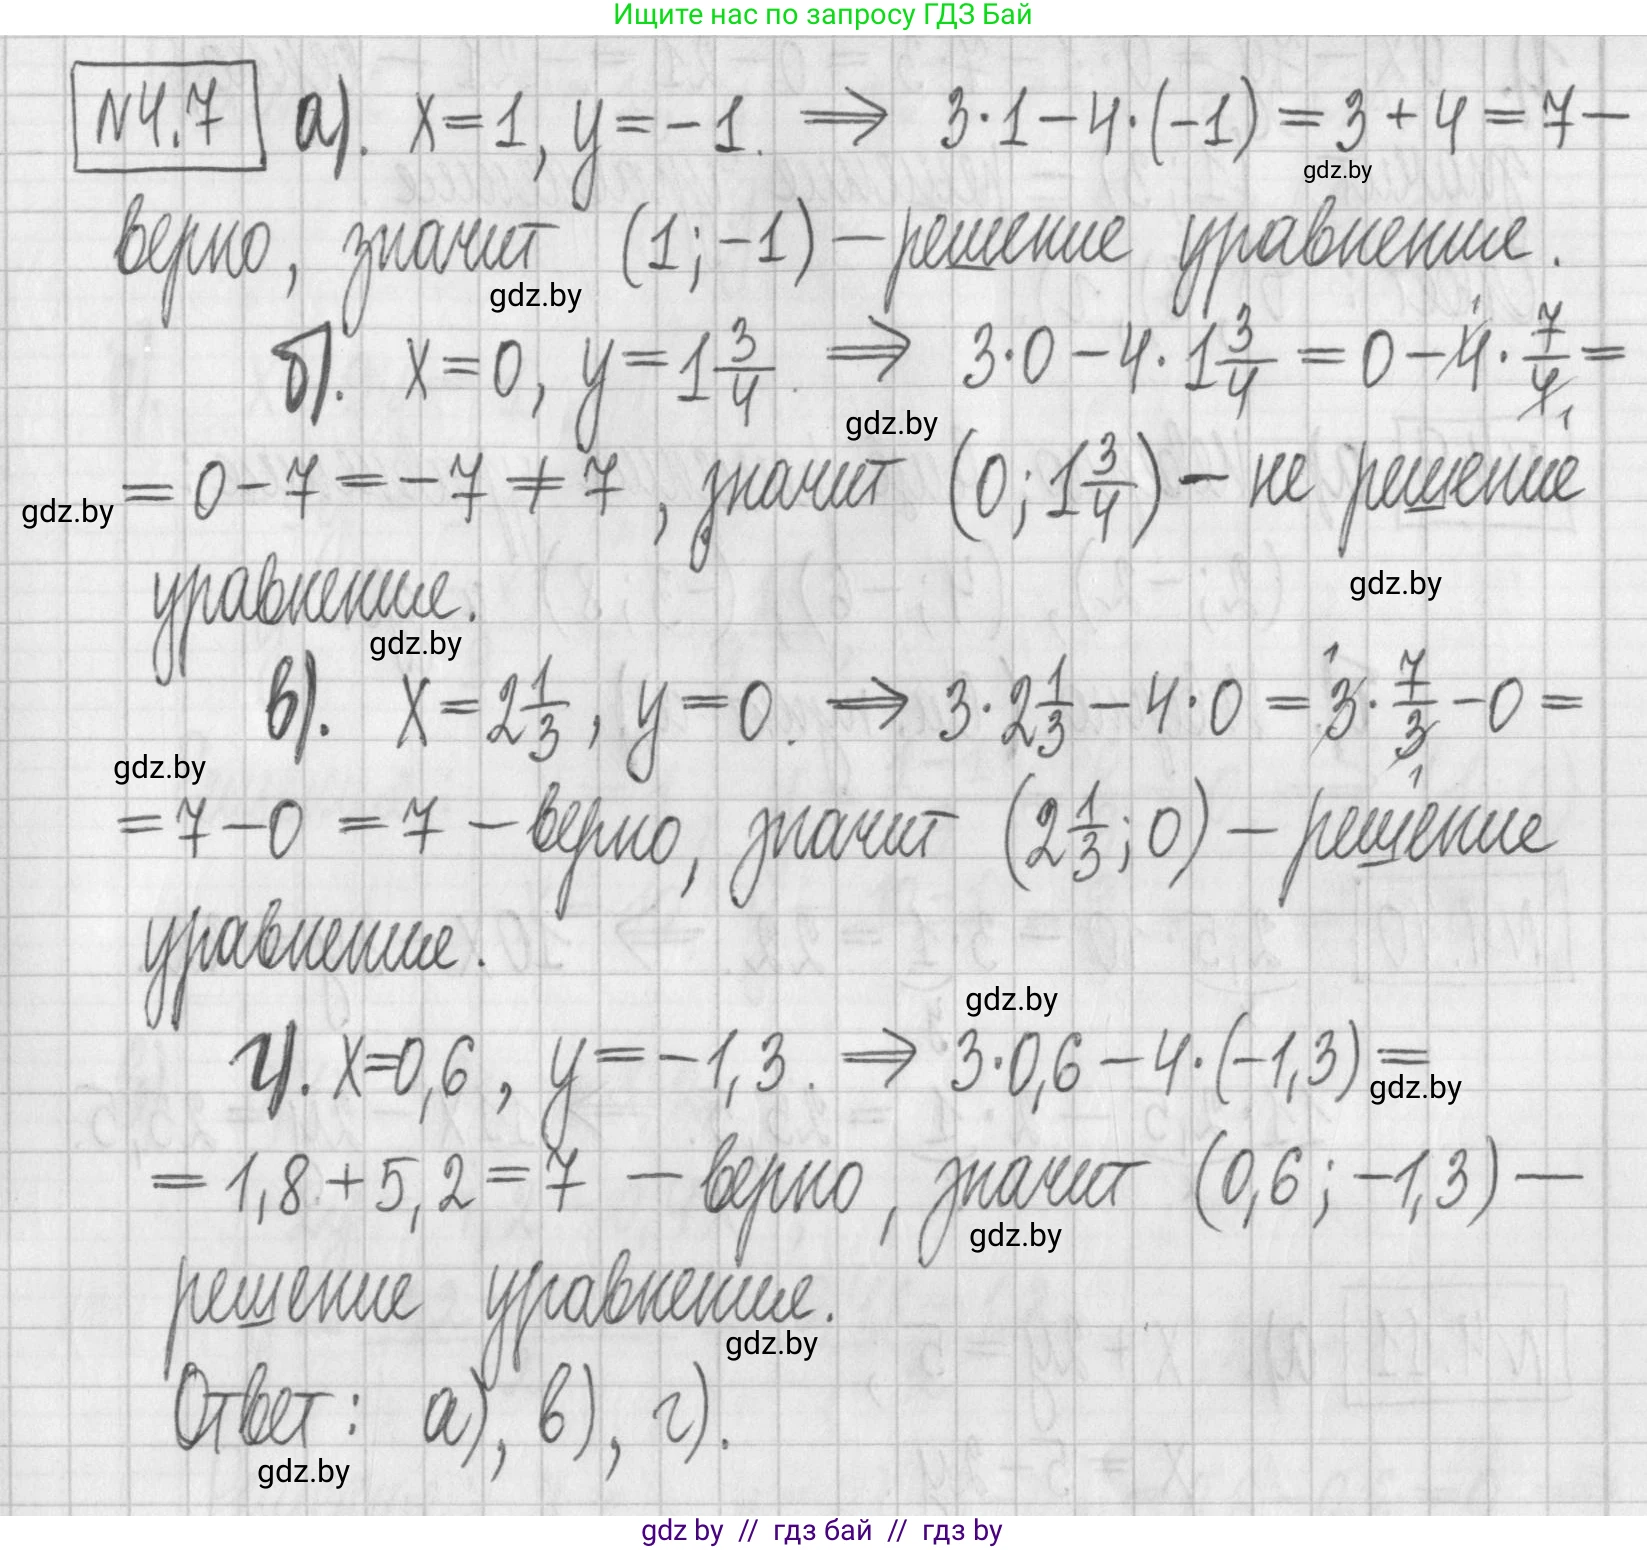 Ищите нас по запросу ГДЗ Бай
№4.7 а). x=1, y=-1. ⇒ 3·1-4·(-1)=3+4=7-
gdz.by
верно, значит (1;-1) - решение уравнение.
gdz.by
б). x=0, y=1 3/4. ⇒ 3·0-4·1 3/4=0-4·7/4=
gdz.by
=0-7=-7≠7, значит (0; 1 3/4) - не решение
gdz.by
gdz.by
уравнение.
gdz.by
в). x=2 1/3, y=0. ⇒ 3·2 1/3-4·0=3·7/3-0=
gdz.by
=7-0=7 - верно, значит (2 1/3; 0) - решение
уравнение.
gdz.by
г). x=0,6, y=-1,3. ⇒ 3·0,6-4·(-1,3)=
gdz.by
=1,8+5,2=7 - верно, значит (0,6; -1,3) -
gdz.by
решение уравнение.
gdz.by
Ответ: а), в), г).
gdz.by
gdz by // гдз бай // гдз by